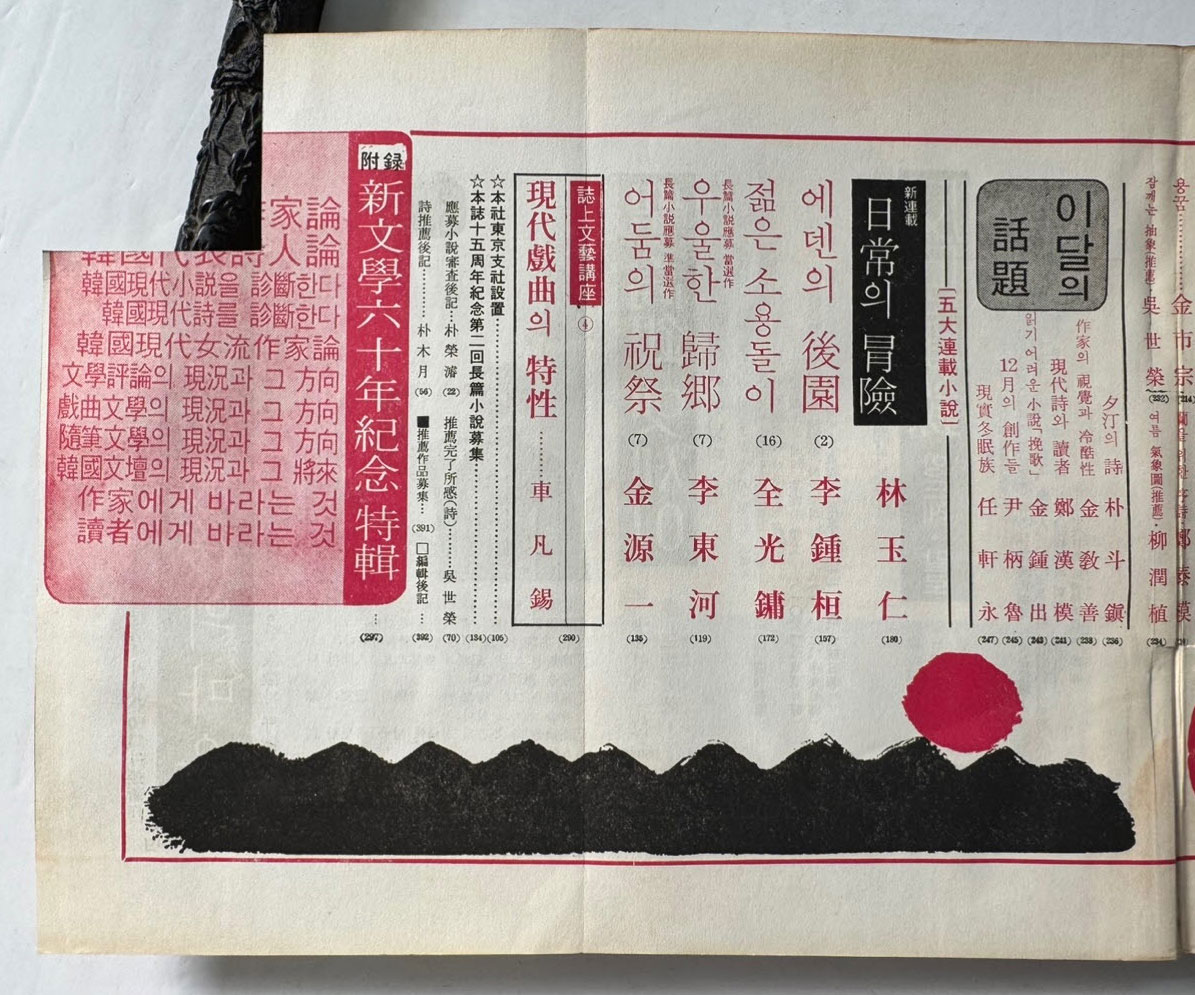 용꿈은………金市宗(214)
蘭을 위한 序詩·鄭泰模
잠깨는 抽象(推薦)…吳世榮(232)
여름 氣象圖(推薦)·柳潤植(234)
이달의
話題
夕汀의 詩 朴斗鎭(236)
作家의 視覺과 冷酷性 金敎善(238)
現代詩와 讀者 鄭漢模(241)
읽기 어려운 小說「挽歌」 金鍾出(243)
12月의 創作들 尹柄魯(245)
現實冬眠族 任軒永(247)
[五大連載小說]
新連載
日常의 冒險 林玉仁(180)
에덴의 後園(2) 李鍾桓(157)
젊은 소용돌이(16) 全光鏞(172)
長篇小說應募 當選作
우울한 歸鄕(7) 李東河(119)
長篇小說應募 準當選作
어둠의 祝祭(7) 金源一(135)
誌上文藝講座④
現代戱曲의 特性………車凡錫(290)
☆本社東京支社設置………(105)
☆本誌十五周年紀念第二回長篇小說募集………(184)
應募小說審査後記…朴榮濬(22)
推薦完了所感(詩)………吳世榮(70)
詩推薦後記………朴木月(56)
■推薦作品募集…(391)
□編輯後記…(392)
附録
新文學六十年紀念特輯…(297)
家論
韓國代表詩人論
韓國現代小說을 診斷한다
韓國現代詩를 診斷한다
韓國現代女流作家論
文學評論의 現況과 그 方向
戱曲文學의 現況과 그 方向
隨筆文學의 現況과 그 方向
韓國文壇의 現況과 그 將來
作家에게 바라는 것
讀者에게 바라는 것